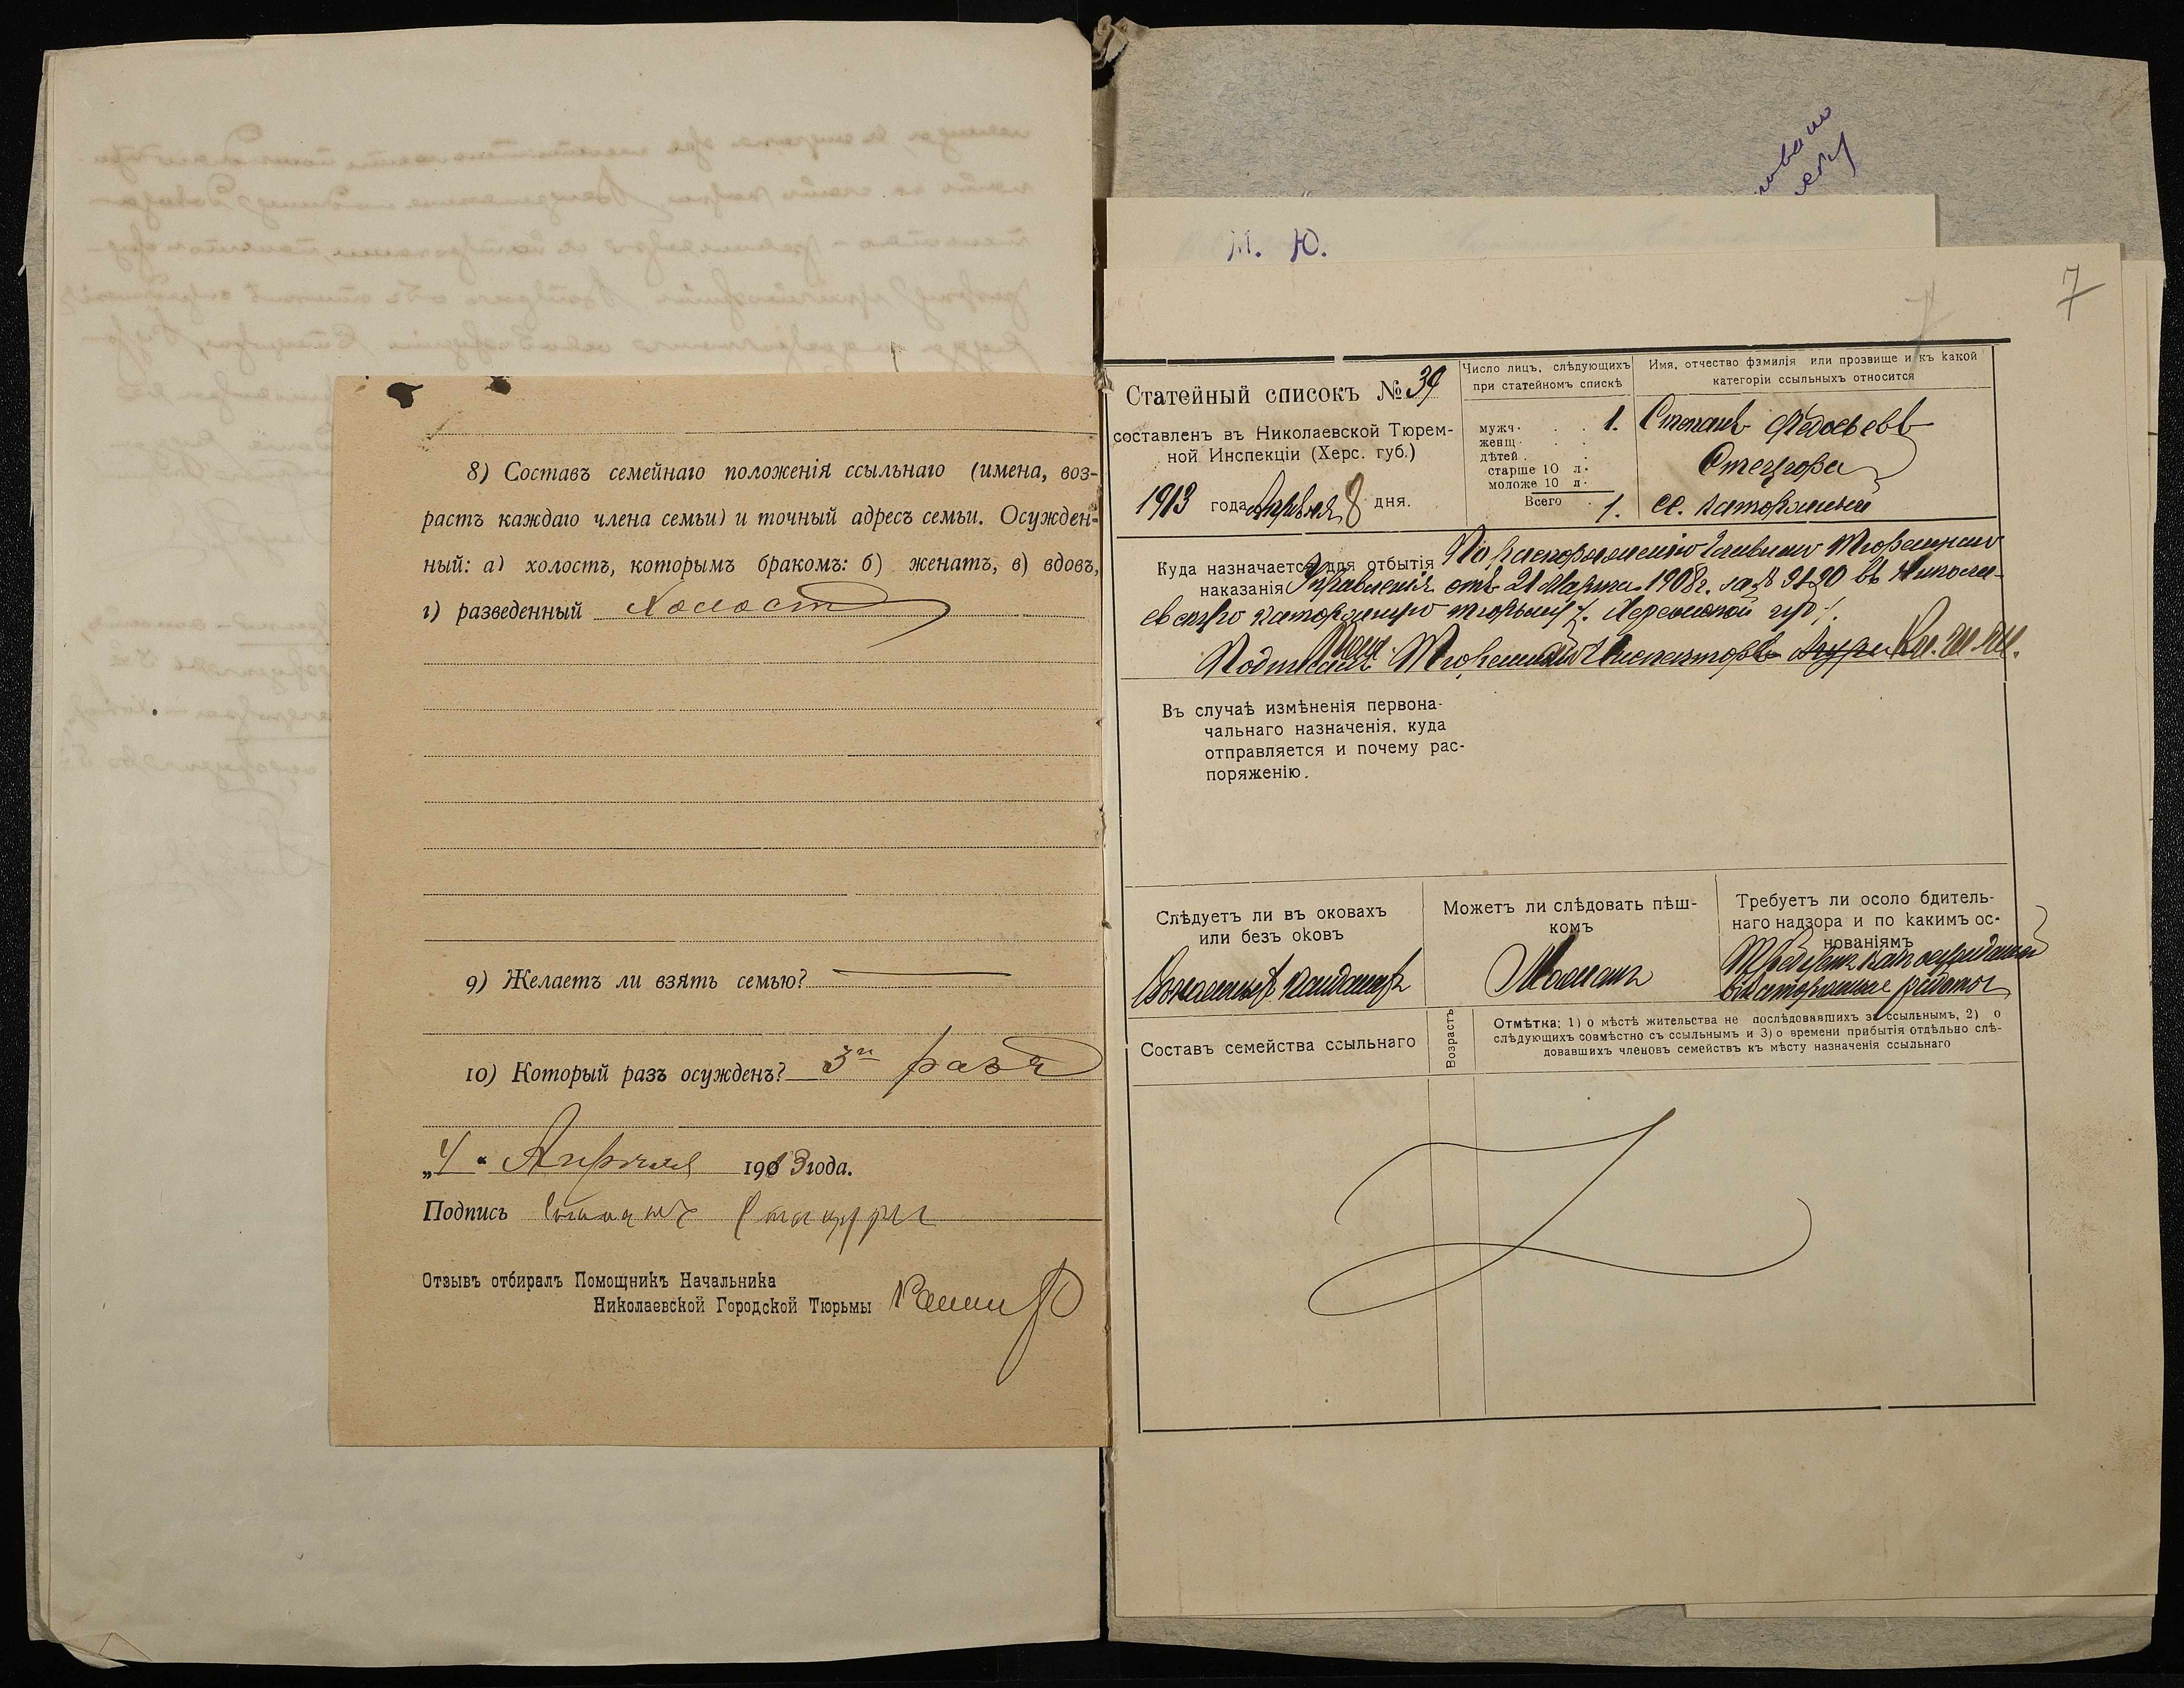 8) Составъ семейнаго положенія ссыльнаго (имена, воз-
растъ каждаго члена семьи) и точный адресъ семьи. Осужден-
ный: а) холостъ, которымъ бракомъ: б) женатъ, в) вдовъ,
г) разведенный Холостъ
9) Желаетъ ли взять семью?
10) Который разъ осужденъ? 3й разъ
„4“ Апрѣля 1913 года.
Подпись
Отзывъ отбиралъ Помощникъ Начальника
Николаевской Городской Тюрьмы
М. Ю.
7
Статейный списокъ № 39
составленъ въ Николаевской Тюрем-
ной Инспекціи (Херс. губ.)
1913 года Апрѣля 8 дня.
Число лицъ, слѣдующихъ
при статейномъ спискѣ
мужч. 1.
женщ.
дѣтей
старше 10 л.
моложе 10 л.
Всего 1.
Имя, отчество фамилія или прозвище и къ какой
категоріи ссыльныхъ относится
Степанъ Федосѣевъ
сс. каторжный
Куда назначается для отбытія
наказанія
По распоряженію Главнаго Тюремнаго
Управленія отъ 21 Марта 1908 г. за № 9490 въ Никола-
евскую каторжную тюрьму /. Херсонской губ /.
Подписалъ Тюремный Инспекторъ
Въ случаѣ измѣненія первона-
чальнаго назначенія, куда
отправляется и почему рас-
поряженію.
Слѣдуетъ ли въ оковахъ
или безъ оковъ
Въ ножныхъ кандалахъ
Можетъ ли слѣдовать пѣш-
комъ
Можетъ
Требуетъ ли осоло бдитель-
наго надзора и по какимъ ос-
нованіямъ
Требуетъ какъ осужденный
въ каторжные работы
Составъ семейства ссыльнаго
Возрастъ
Отмѣтка: 1) о мѣстѣ жительства не послѣдовавшихъ за ссыльнымъ, 2) о
слѣдующихъ совмѣстно съ ссыльнымъ и 3) о времени прибытія отдѣльно слѣ-
довавшихъ членовъ семействъ къ мѣсту назначенія ссыльнаго